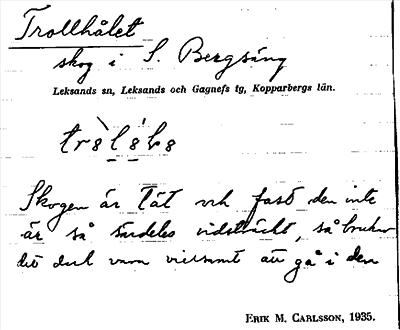 Trollhålet
skog i S. Bergsäng
Leksands sn, Leksands och Gagnefs tg, Kopparbergs län.
Skogen är tät och fast den inte
är så särdeles vidsträckt, så brukar
det dock vara villsamt att gå i den
ERIK M. CARLSSON, 1935.